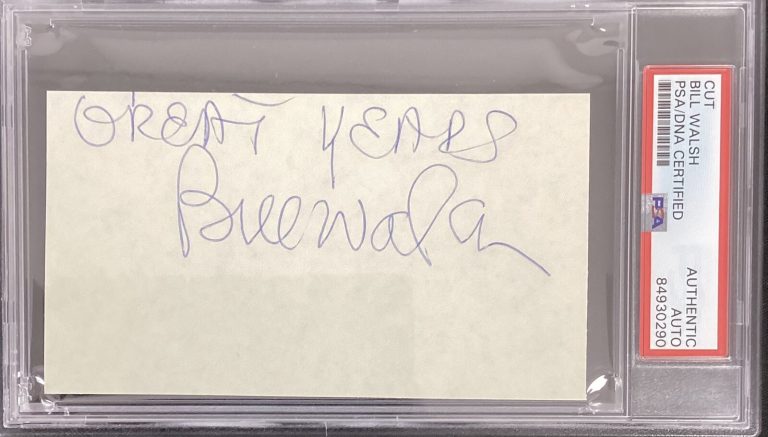 GREAT YEARS
Bill Walsh
CUT
BILL WALSH
PSA/DNA CERTIFIED
PSA
AUTHENTIC
AUTO
84930290